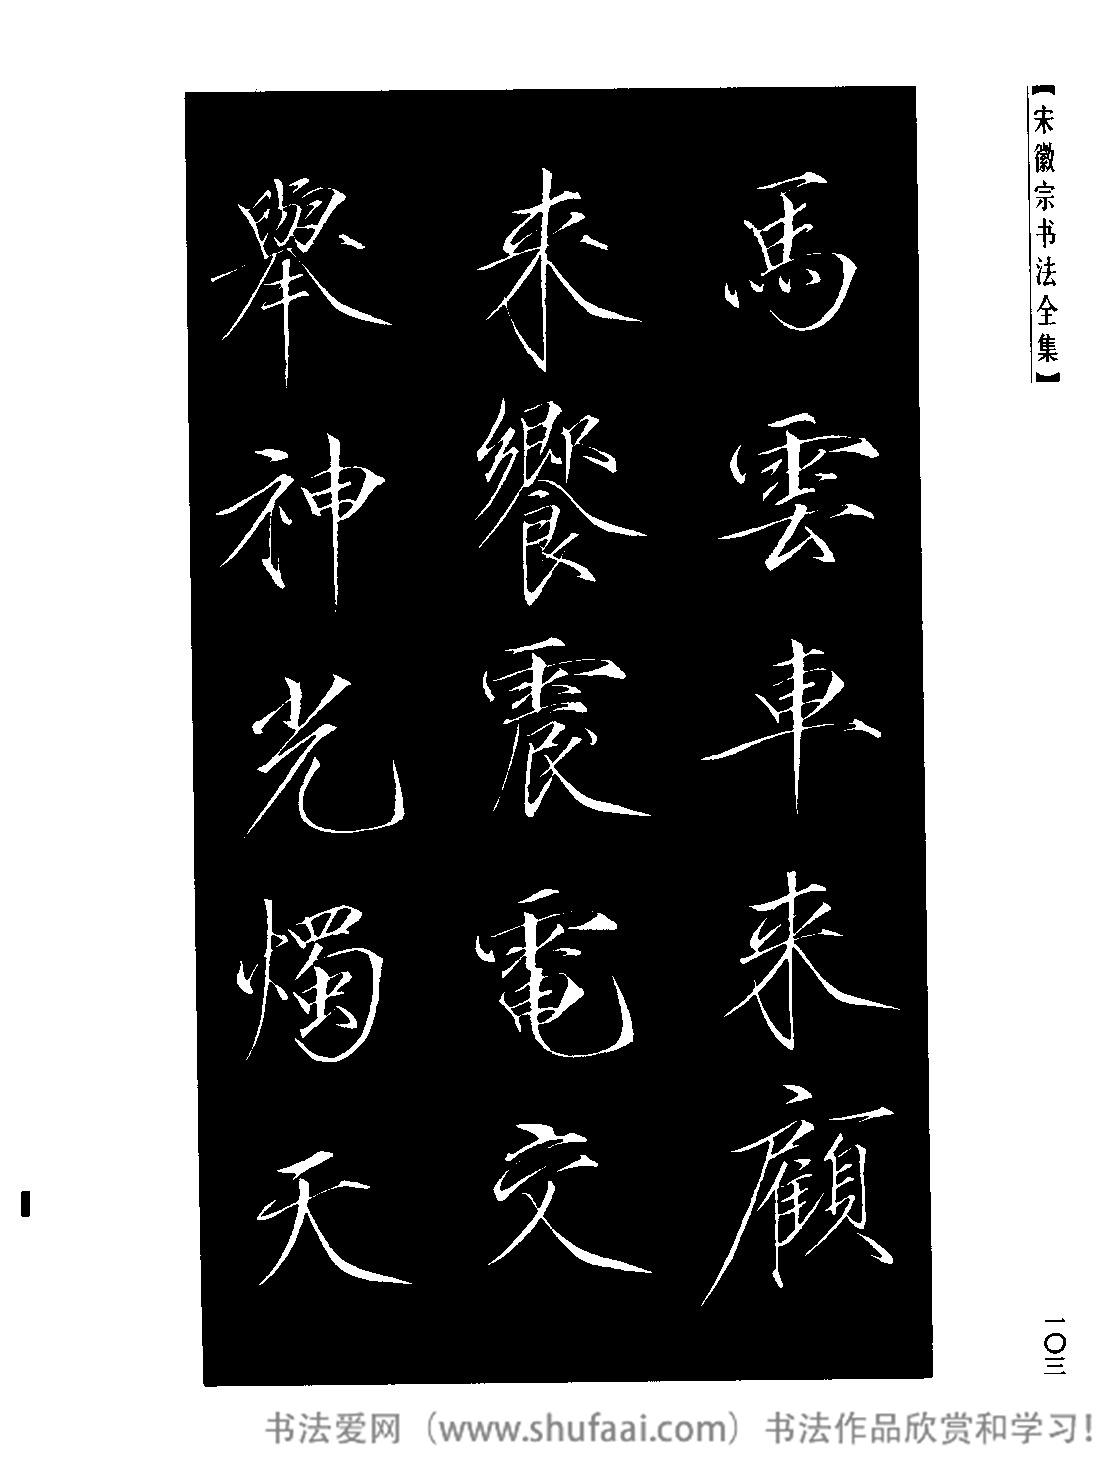 【宋徽宗书法全集】
馬雲車来顧
来饗震電交
舉神光燭天
一〇三
书法爱网（www.shufaai.com）书法作品欣赏和学习！